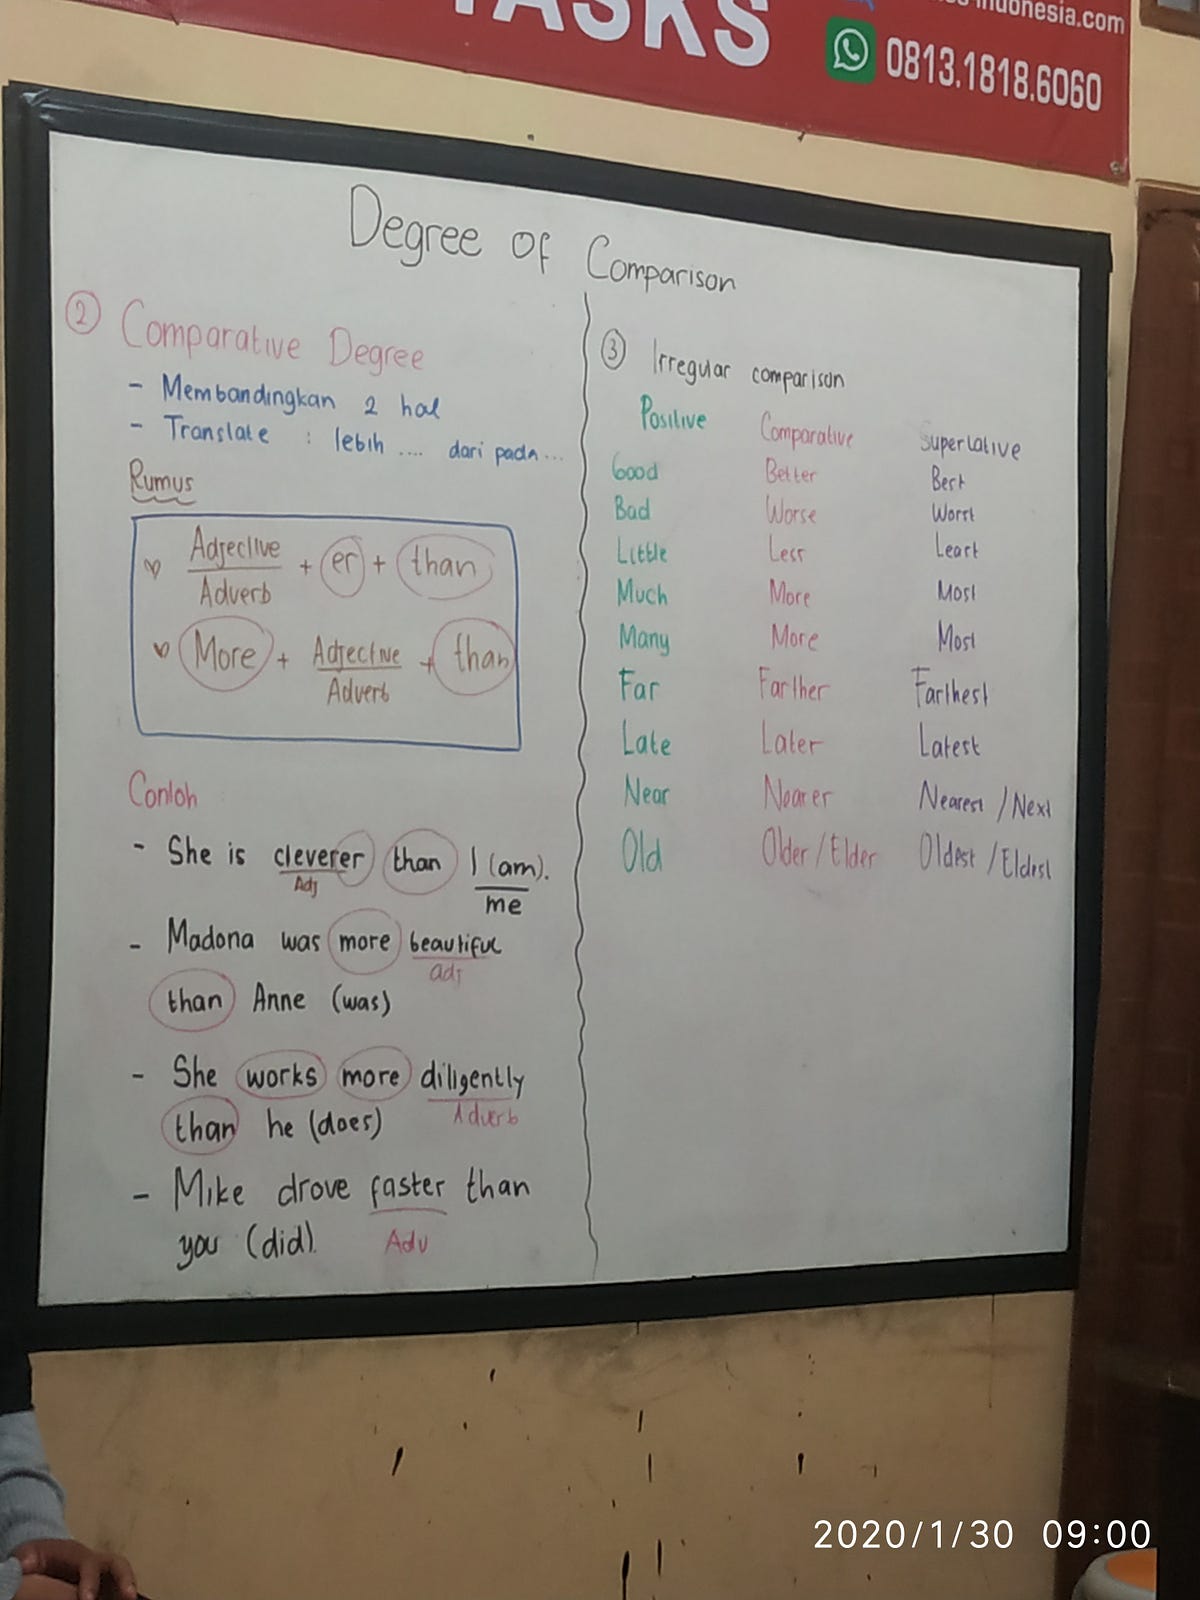 TASKS
indonesia.com
0813.1818.6060
Degree of Comparison
2 Comparative Degree
- Membandingkan 2 hal
- Translate : lebih .... dari pada...
Rumus
Adjective
Adverb
+ er + than
More + Adjective
Adverb
+ than
Contoh
- She is cleverer than I (am).
Adj
me
- Madona was more beautiful
adj
than Anne (was)
- She works more diligently
Adverb
than he (does)
- Mike drove faster than
you (did).
Adv
3 Irregular comparison
Positive Comparative Superlative
Good Better Best
Bad Worse Worst
Little Less Least
Much More Most
Many More Most
Far Farther Farthest
Late Later Latest
Near Nearer Nearest / Next
Old Older / Elder Oldest / Eldest
2020/1/30 09:00